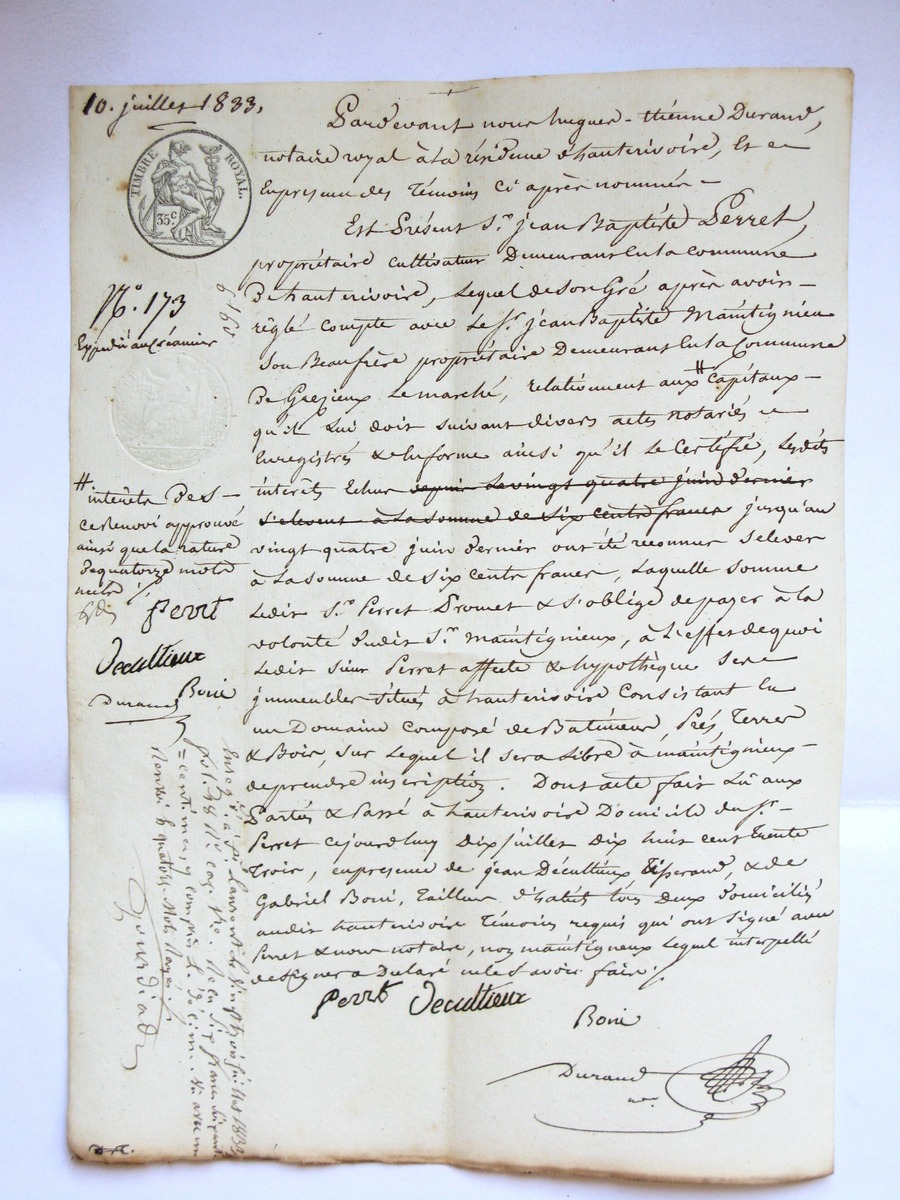 10. juillet 1833.
TIMBRE ROYAL.
35.c
N.o 173
Expédié au créancier
Pardevant nous hugues-étienne Durand,
notaire royal à la résidence d'hauterivoire, Et en
En présence des témoins ci après nommés
Est Présent S.r jean Baptiste Perret,
propriétaire cultivateur Demeurant En la commune
De hauterivoire, Lequel de son Gré après avoir
réglé compte avec Le S.r jean Baptiste Maintignieu
Son Beaufrère propriétaire Demeurant En la Commune
De Grezieux Le marché, relativement aux # Capitaux
qu'il Lui doit suivant divers actes notariés
Enregistrés & En forme ainsi qu'il Le Certifie, Lesdits
intérêts Echus depuis Le vingt quatre juin dernier
s'élevent à La somme de Six cents francs jusqu'au
vingt quatre juin dernier ont été reconnus S'elever
à La somme de Six cents francs, Laquelle somme
Ledit S.r Perret Promet & S'oblige de payer à la
volonté dudit S.r maintignieux, à L'effet de quoi
Ledit Sieur Perret affecte & hypothèque Ses
jmmeubles situés à hauterivoire Consistant En
un Domaine Composé de Batiments, Prés, Terres
& Bois, Sur Lequel il sera Libre à maintignieux
de prendre inscription. Dont acte fait Lû aux
Parties & Passé à hauterivoire Domicile du Sr.
Perret cejourdhuy Dix juillet Dix huit cent trente
Trois, en présence de jean Décultieux Tisserand, & de
Gabriel Boni, Tailleur d'habits tous Deux domiciliés
audit hauterivoire Témoins requis qui ont Signé avec
Perret & nous notaire, non maintigneux Lequel interpellé
de signer a Déclaré ne Le Savoir faire ./.
Perret Decultieux
Boni
Durand
# intérêts Des
Ce Renvoi approuvé
ainsi que la rature
de quatorze mots
nuls ./.
Perret
Decultieux
Boni
Durand
Enregistré à St. Laurent le juillet 1833
fol. 98 Reçu Six francs
centimes, y compris le décime.
Renvoi & quatorze Mots Rayés.